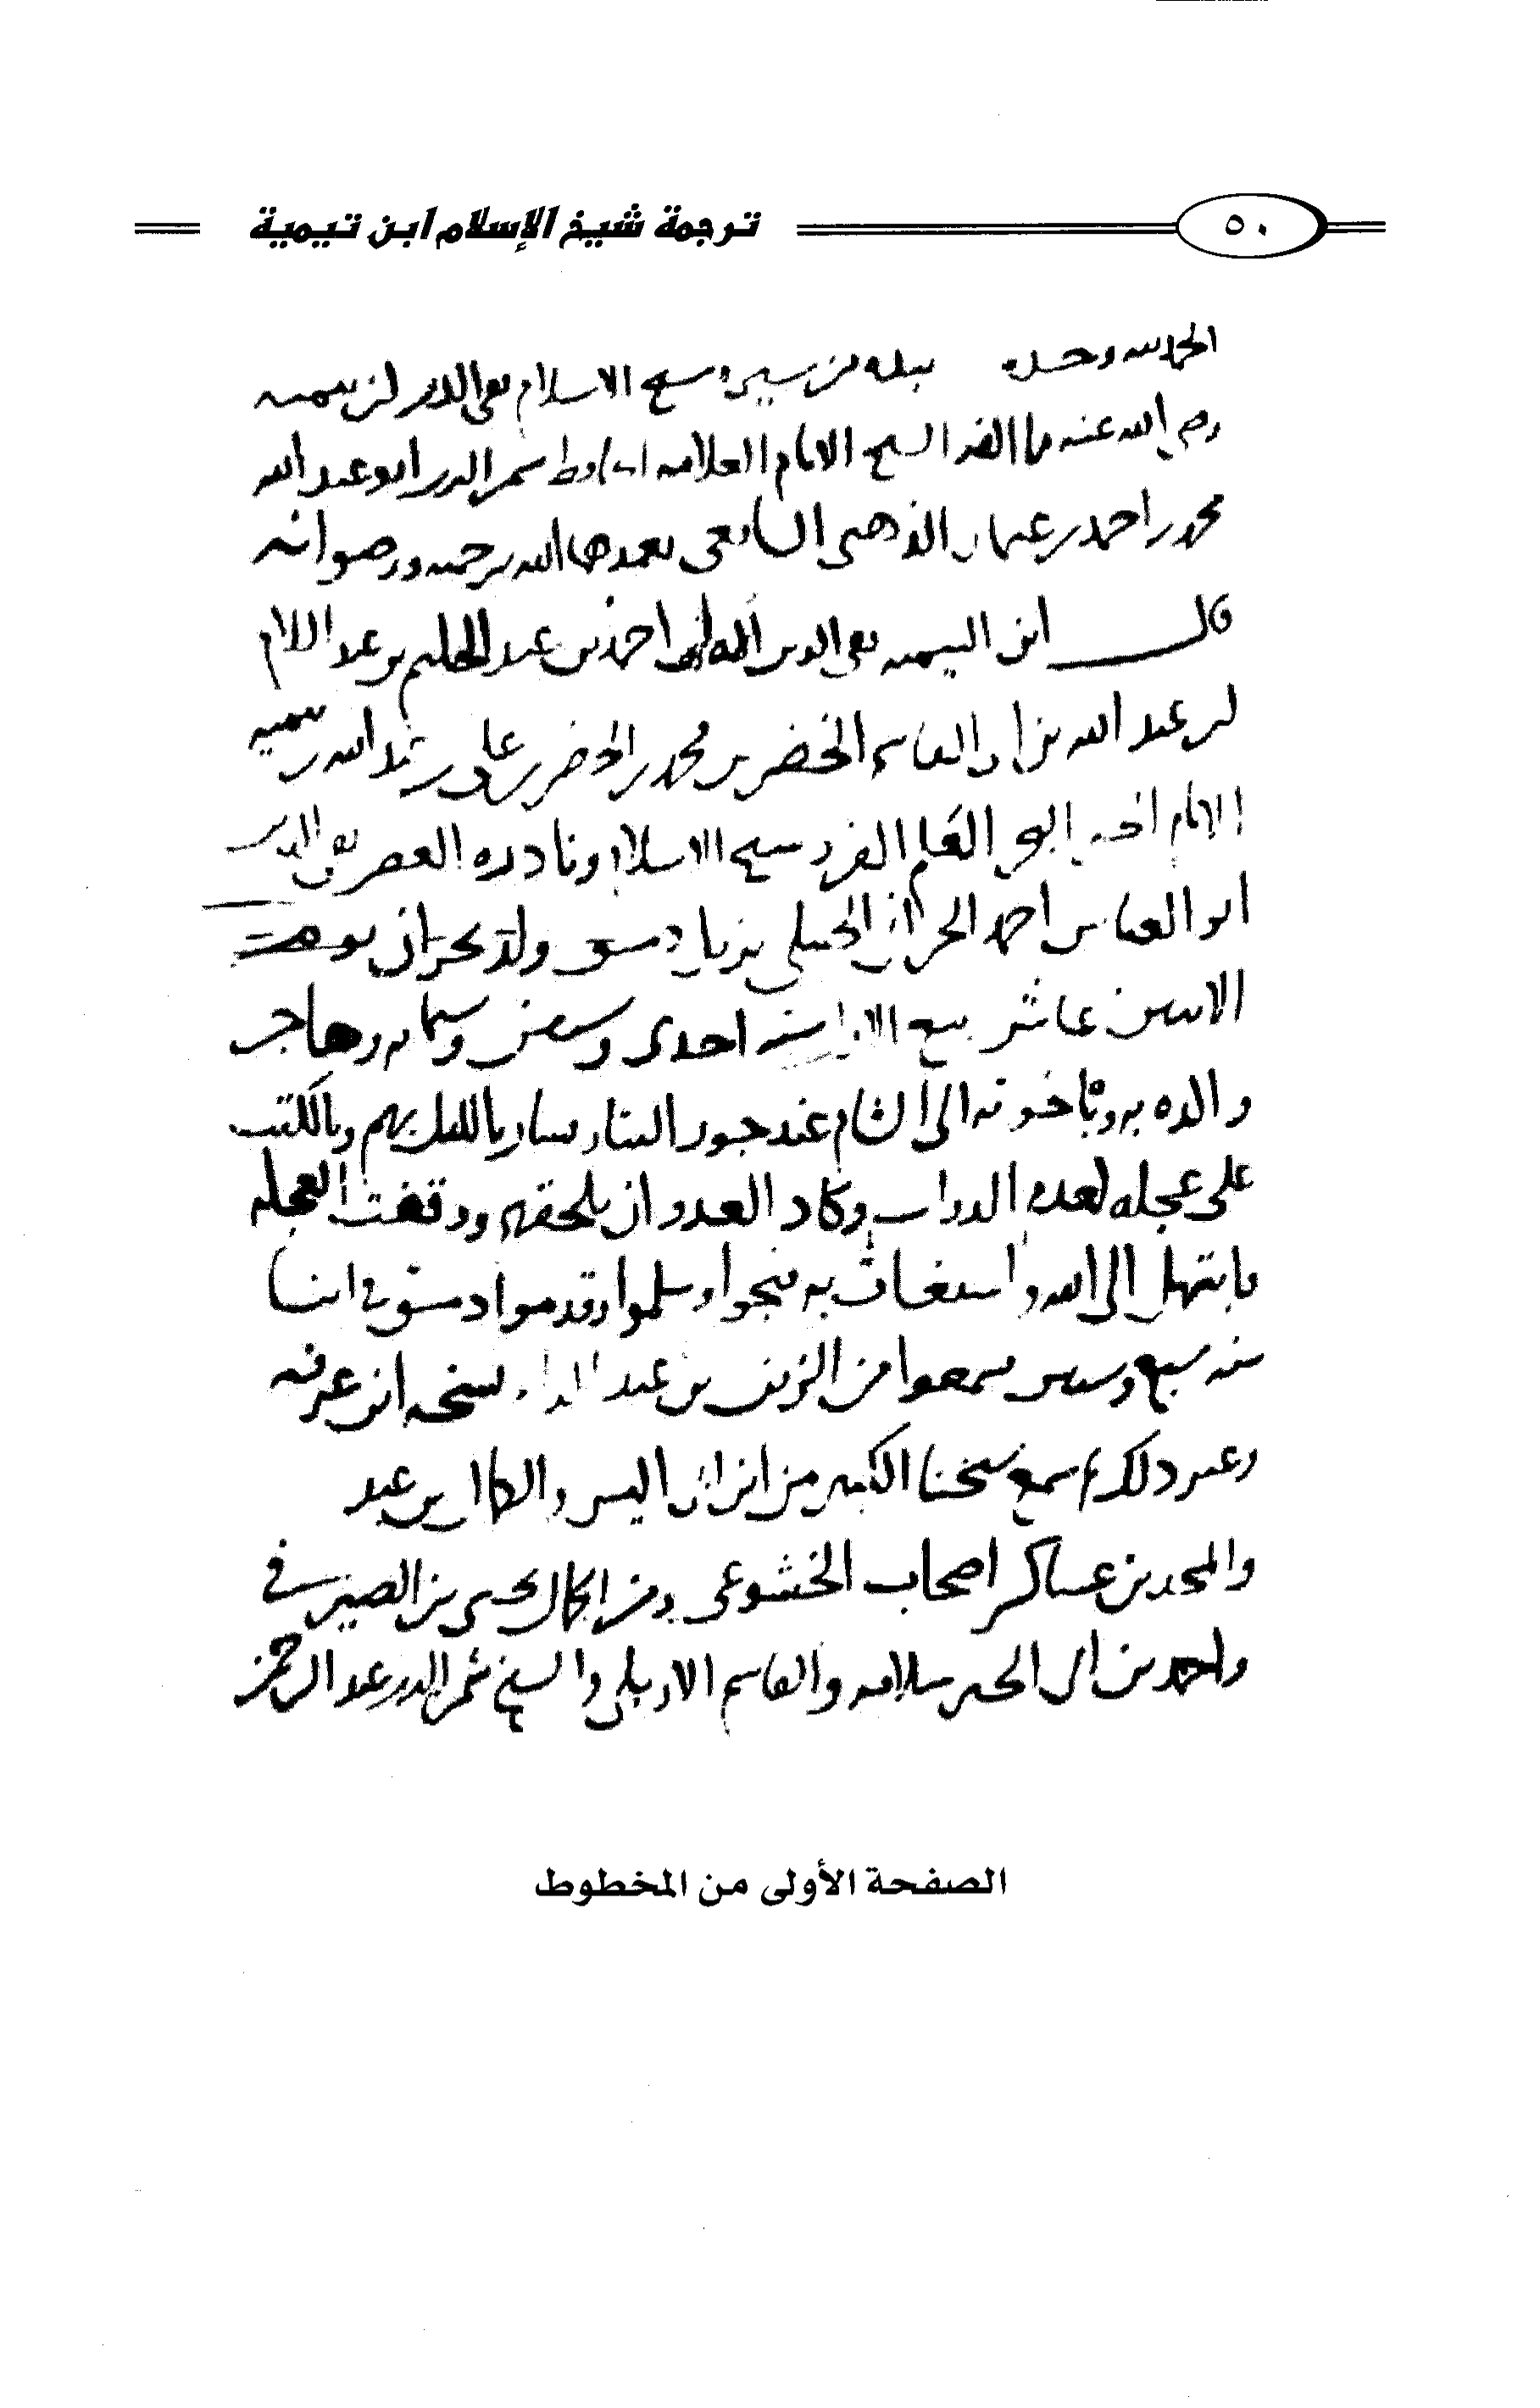 ٥٠ ترجمة شيخ الإسلام ابن تيمية
الحمد لله وحده نبذه من سيره شيخ الاسلام تقي الدين ابن تيميه
رضي الله عنه مما الفه الشيخ الامام العلامه الحافظ شمس الدين ابو عبد الله
محمد بن احمد بن عثمان الذهبي الشافعي تغمدهما الله برحمته ورضوانه
قال ابن تيميه تقي الدين احمد بن عبد الحليم بن عبد السلام
بن عبد الله بن ابي القاسم الخضر بن محمد بن الخضر بن علي بن عبد الله بن تيميه
الامام العالم المفرد شيخ الاسلام ونادره العصر تقي الدين
ابو العباس احمد الحراني الحنبلي نزيل دمشق ولد بحران يوم
الاثنين عاشر ربيع الاول سنه احدى وستين وستمايه وهاجر
والده به وباخوته الى الشام عند جور التتار فسار بالليل بهم وبالكتب
على عجله لعدم الدواب وكاد العدو ان يلحقهم ووقفت العجله
فابتهل الى الله واستغاث به فنجوا وسلموا وقدموا دمشق في اثناء
سنه سبع وستين فسمعوا من الزين بن عبد الدايم نسخه ابن عرفه
وغير ذلك ثم سمع شيخنا الكثير من ابن ابي اليسر والكمال بن عبد
والمجد بن عساكر اصحاب الخشوعي ومن الجمال يحيى بن الصيرفي
واحمد بن ابي الخير سلامه والقاسم الاربلي والشيخ شمس الدين عبد الرحمن
الصفحة الأولى من المخطوط